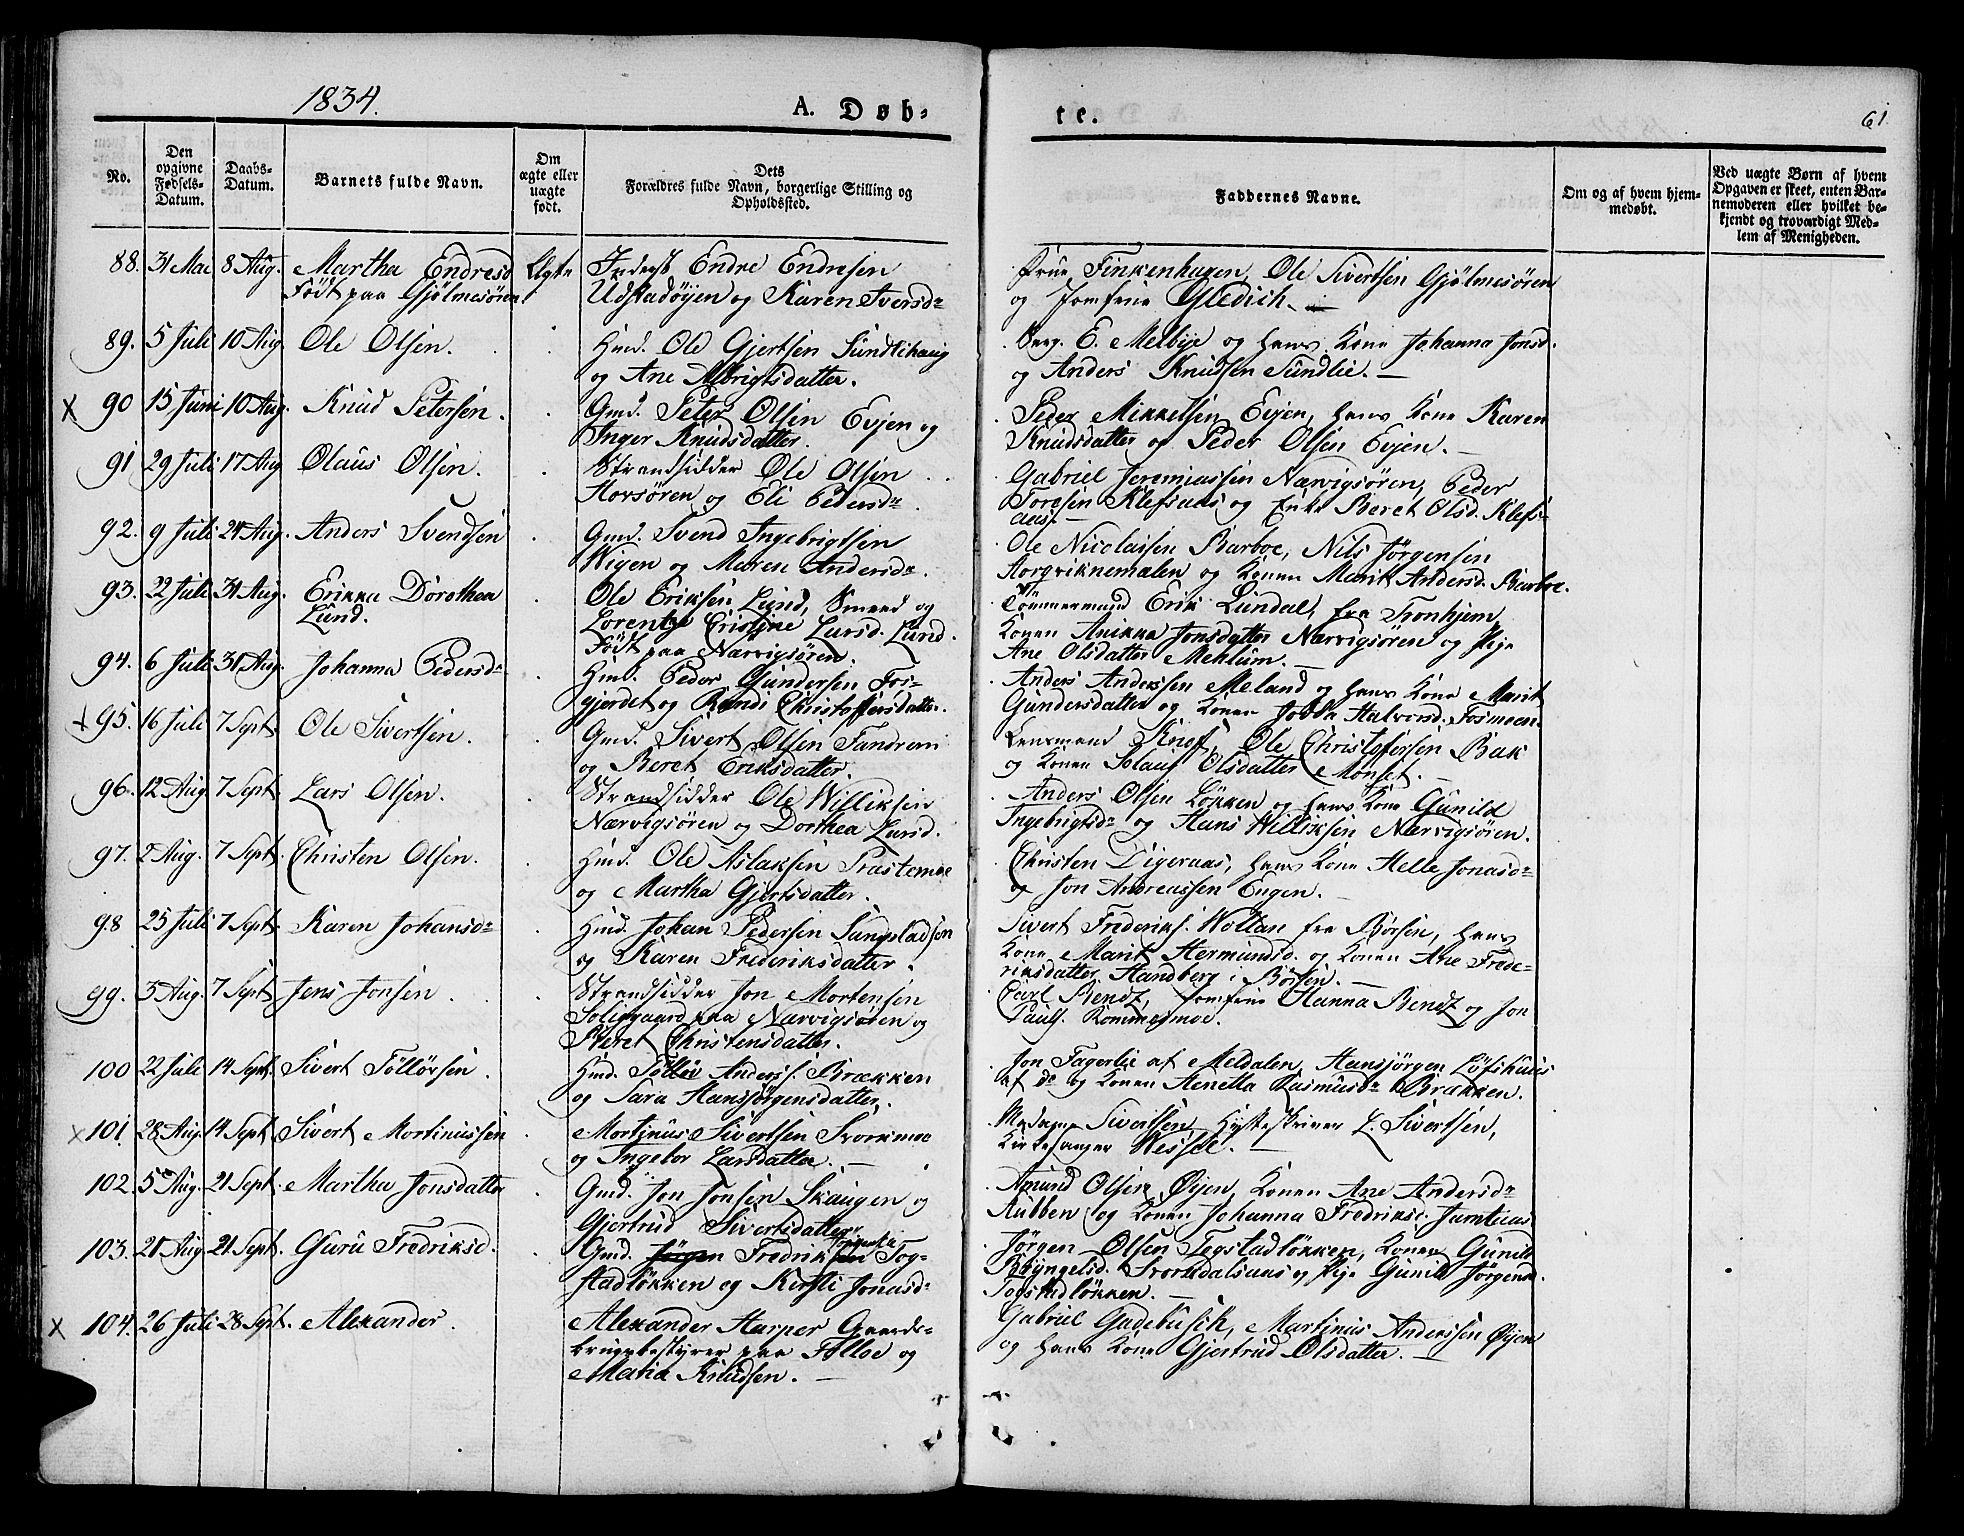 1834.
A. Døb-
te.
61
No.
Den opgivne Fødsels-Datum.
Daabs-Datum.
Barnets fulde Navn.
Om ægte eller uægte født.
Dets Forældres fulde Navn, borgerlige Stilling og Opholdssted.
Faddernes Navne.
Om og af hvem hjem-medøbt.
Ved uægte Børn af hvem Opgaven er skeet, enten Bar-nemoderen eller hvilket be-kjendt og troværdigt Med-lem af Menigheden.
88. 31 Mai 8 Aug. Martha Endresd Ægte Inderst Endre Endresen
Født paa Gjölmesören Udstadöyen og Karen Iversdr
Frue Finkenhagen, Ole Sivertsen Gjölmesören
og Jomfrue Gledich.
89. 5 Juli 10 Aug. Ole Olsen. Hmd. Ole Gjertsen Sundlihaug
og Ane Albrigtsdatter.
Serg. E. Melbye og hans Kone Johanna Jonsd.
og Anders Knudsen Sundlie.
X 90 15 Juni 10 Aug. Knud Petersen. Gmd. Peter Olsen Evjen og
Inger Knudsdatter.
Peder Mikkelsen Evjen, hans Kone Karen
Knudsdatter og Peder Olsen Evjen.
91 29 Juli 17 Aug Olaus Olsen. Strandsidder Ole Olsen
Hovsören og Eli Pedersdr.
Gabriel Jeremiassen Nærvigsören, Peder
Toresen Klefsaas og Enke Beret Olsd. Klefs-
aas.
92. 9 Juli 24 Aug. Anders Svendsen Gmd. Svend Ingebrigtsen
Wigen og Maren Andersdr.
Ole Nicolaisen Barboe, Nils Jörgensen
Aorgviknemalen og Konen Marit Andersd. Barboe.
93. 22 Juli 31 Aug. Erikka Dorothea Ole Eriksen Lund, Smed og
Lund. Lorentze Cristine Larsd. Lund.
Født paa Nærvigsören.
Tömmermand Erik Lundal, fra Tronhjem,
Konen Anikka Jonsdatter Nærvigsören og Pige
Ane Olsdatter Mehlum.
94. 6 Juli 31 Aug. Johanna Pedersdr Hmd. Peder Gundersen Fos-
gjerdet og Randi Christoffersdatter.
Anders Anderssen Meland og hans Kone Marit
Gundersdatter og Konen Halvorsd. Fosmoen.
X 95. 16 Juli 7 Sept Ole Sivertsen. Gmd. Sivert Olsen Fandrem
og Beret Eriksdatter.
Lensmand Knoff, Ole Christofersen Bak
og Konen Solaug Olsdatter Monset.
96. 12 Aug. 7 Sept Lars Olsen. Strandsidder Ole Williksen
Nærvigsören og Dorthea Larsd.
Anders Olsen Løkken og hans Kone Gunild
Ingebrigtsdr og Hans Williksen Nærvigsören.
97. 2 Aug. 7 Sept Christen Olsen. Hmd. Ole Aslaksen Præstemoe
og Martha Gjertsdatter.
Christen Digeraas, hans Kone Helle Jonasdr
og Jon Andreassen Engen.
98 25 Juli 7 Sept. Karen Johansdr Hmd. Johan Pedersen
og Karen Frederiksdatter.
Sivert Frederiks. Wollan fra Börsen, hans
Kone Marit Hermundsd. og Konen Ane Frede-
riksdatter Handberg i Börsen.
99. 3 Aug. 7 Sept Jens Jonsen. Strandsidder Jon Mortensen
Soleggaard paa Nærvigsören og
Beret Christensdatter.
Carl Bendz, Jomfrue Hanna Bendz og Jon
Pauls. Kommesmoe.
100 22 Juli 14 Sept. Sivert Föllörsen. Hmd. Föllör Anderss. Brækken
og Sara Hansjörgensdatter.
Jon Fagerlie af Meldalen, Hansjörgen Löfshuus
af do og Konen Henetta Rasmusdr Brækken.
X 101. 28 Aug. 14 Sept. Sivert Mortinussen Mortinus Sivertsen Svorkmoe
og Ingebor Larsdatter.
Madame Sivertsen, Hytteskriver L. Sivertsen,
Kirkesanger Wessel.
102. 5 Aug. 21 Sept. Martha Jonsdatter Gmd. Jon Jonsen Skaugen og
Gjertrud Sivertsdatter
Amund Olsen Öyen, Konen Ane Andersdr
Kubben og Konen Johanna Fredriksd. Jamtaas
103. 21 Aug. 21 Sept. Guru Fredriksd. Gmd. Fredrik Jörgensen Tog-
stadløkken og Kirsti Jonasdr
Jörgen Olsen Togstadløkken, Konen Gunild
Böyngelsd. Svorkdalsaas og Pige Gunild Jörgensd.
Togstadløkken.
X 104. 26 Juli 28 Sept. Alexander. Alexander Harper Gaards-
brugsbestyrer paa Folloe og
Maria Knudsen.
Gabriel Gadebusch, Martinus Anderssen Öyen
og hans Kone Gjertrud Olsdatter.